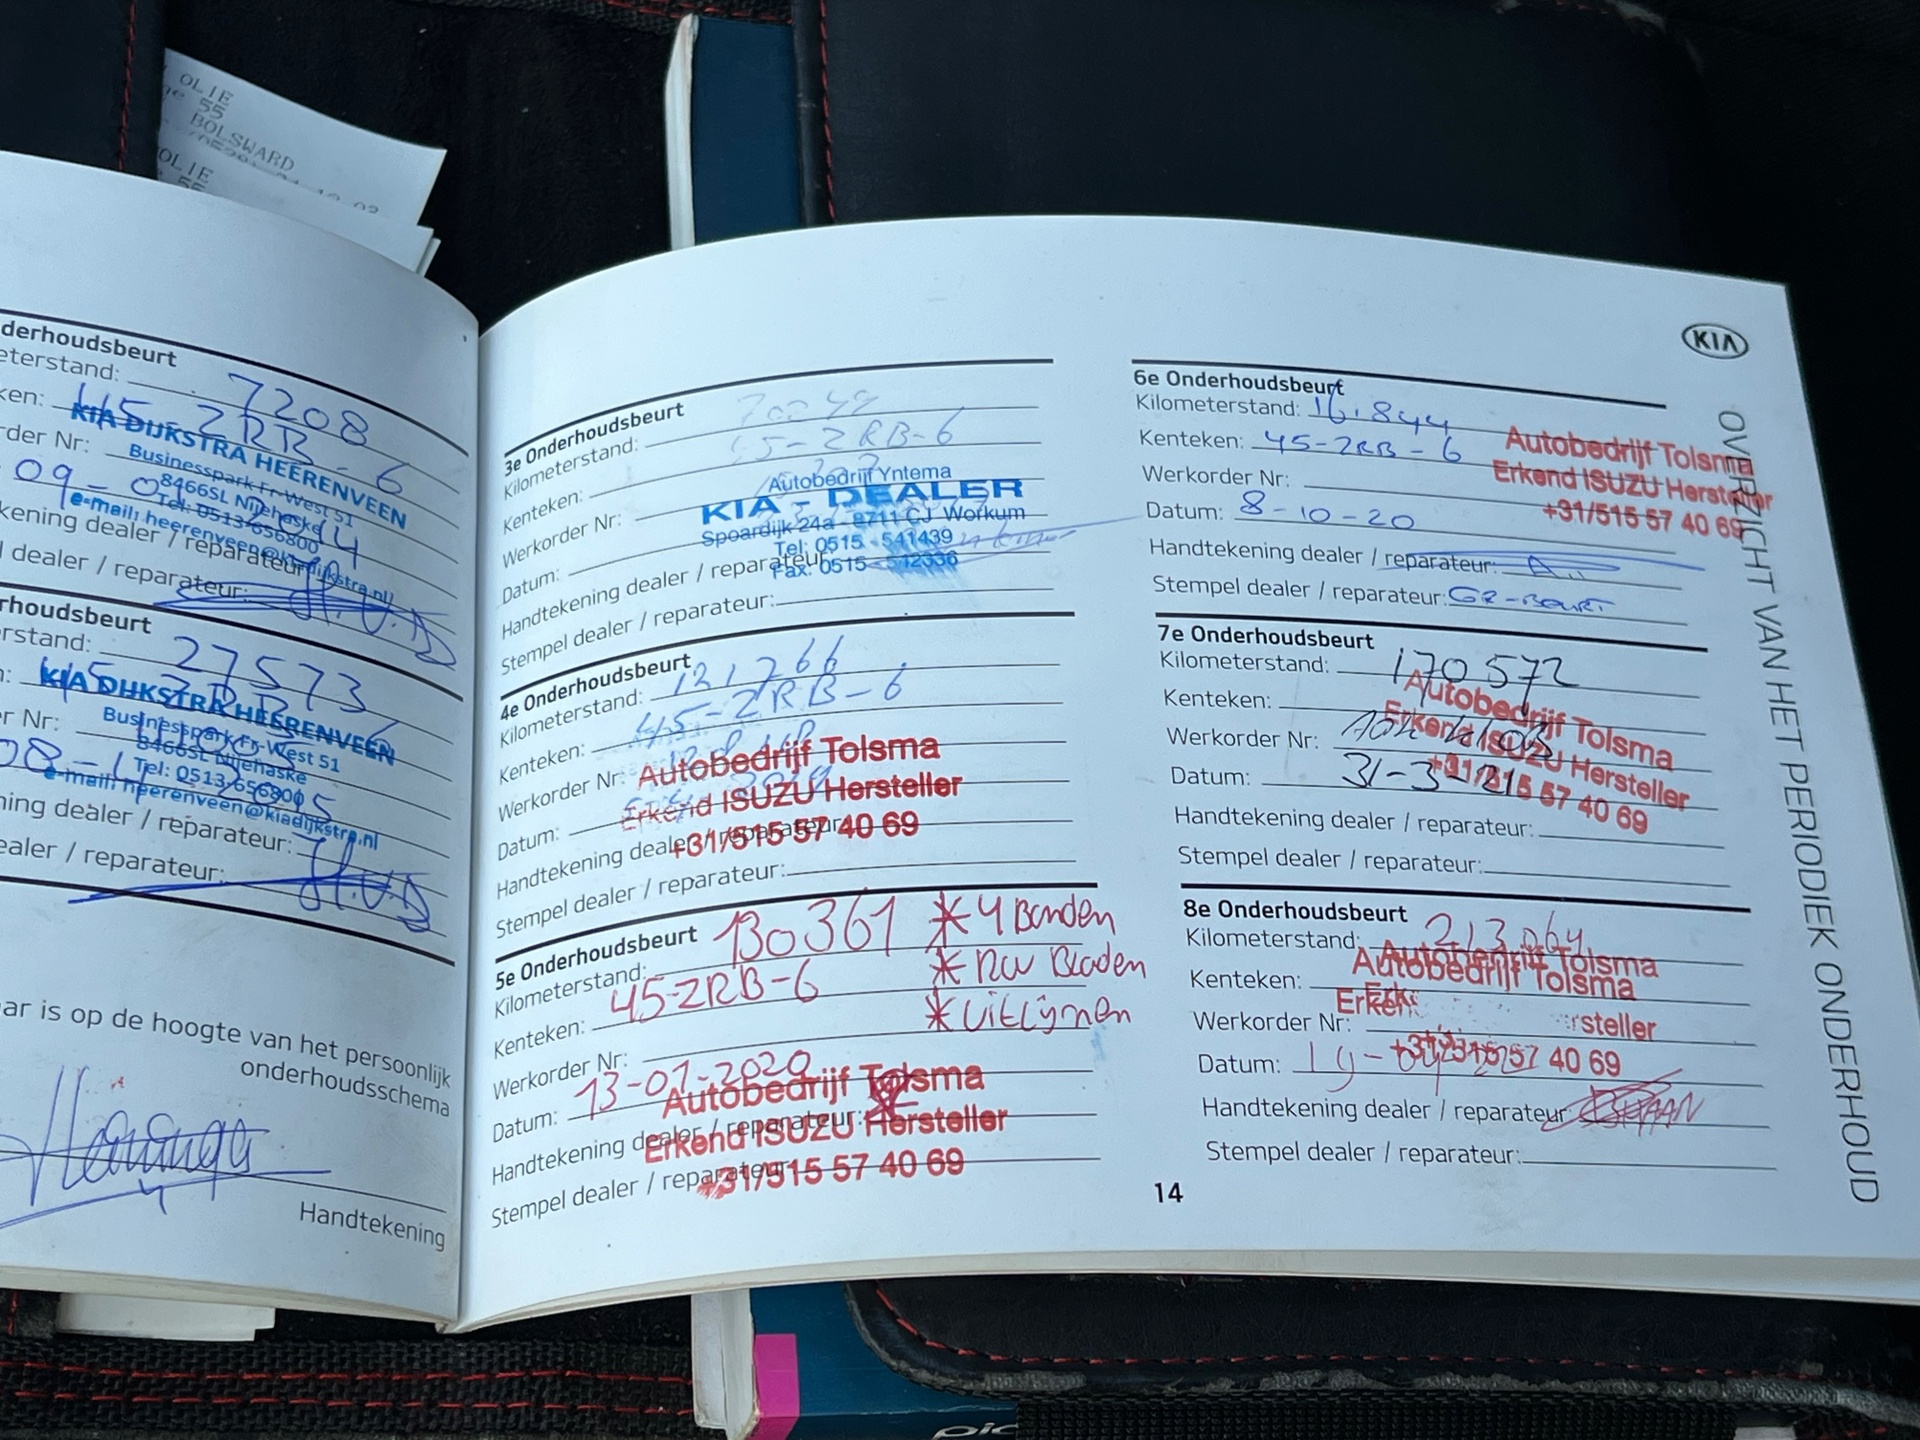 OLIE
55
BOLSWARD
OLIE
55
derhoudsbeurt
eterstand: 7208
ken: 45-ZRB-6
KIA DIJKSTRA HEERENVEEN
rder Nr:
Businesspark Fr-West 51
8466SL Nijehaske
Tel: 0513-656800
e-mail: heerenveen@kiadijkstra.nl
kening dealer / reparateur:
l dealer / reparateur:
rhoudsbeurt
rstand: 27573
KIA DIJKSTRA HEERENVEEN
r Nr:
Businesspark Fr-West 51
8466SL Nijehaske
Tel: 0513-656800
e-mail: heerenveen@kiadijkstra.nl
ning dealer / reparateur:
ealer / reparateur:
ar is op de hoogte van het persoonlijk
onderhoudsschema
Handtekening
3e Onderhoudsbeurt
Kilometerstand:
Kenteken: 45-ZRB-6
Werkorder Nr:
Autobedrijf Yntema
KIA - DEALER
Spoardijk 24a - 8711 CJ Workum
Tel: 0515 - 541439
Fax: 0515 - 542336
Datum:
Handtekening dealer / reparateur:
Stempel dealer / reparateur:
4e Onderhoudsbeurt
Kilometerstand: 121766
Kenteken: 45-ZRB-6
Werkorder Nr:
Autobedrijf Tolsma
Erkend ISUZU Hersteller
+31/515 57 40 69
Datum:
Handtekening dealer / reparateur:
Stempel dealer / reparateur:
5e Onderhoudsbeurt
Kilometerstand: 130361 * 4 Banden
Kenteken: 45-ZRB-6 * RW Bladen
* Uitlijnen
Werkorder Nr:
Datum: 13-01-2020
Autobedrijf Tolsma
Erkend ISUZU Hersteller
+31/515 57 40 69
Handtekening dealer / reparateur:
Stempel dealer / reparateur:
KIA
6e Onderhoudsbeurt
Kilometerstand: 16.844
Kenteken: 45-ZRB-6
Autobedrijf Tolsma
Erkend ISUZU Hersteller
+31/515 57 40 69
Werkorder Nr:
Datum: 8-10-20
Handtekening dealer / reparateur:
Stempel dealer / reparateur: GR-Beurt
7e Onderhoudsbeurt
Kilometerstand: 170572
Kenteken:
Autobedrijf Tolsma
Erkend ISUZU Hersteller
+31/515 57 40 69
Werkorder Nr:
Datum: 31-3-21
Handtekening dealer / reparateur:
Stempel dealer / reparateur:
8e Onderhoudsbeurt
Kilometerstand: 213064
Autobedrijf Tolsma
Autobedrijf Tolsma
Kenteken:
Werkorder Nr:
Datum:
Handtekening dealer / reparateur:
Stempel dealer / reparateur:
14
OVERZICHT VAN HET PERIODIEK ONDERHOUD
pic